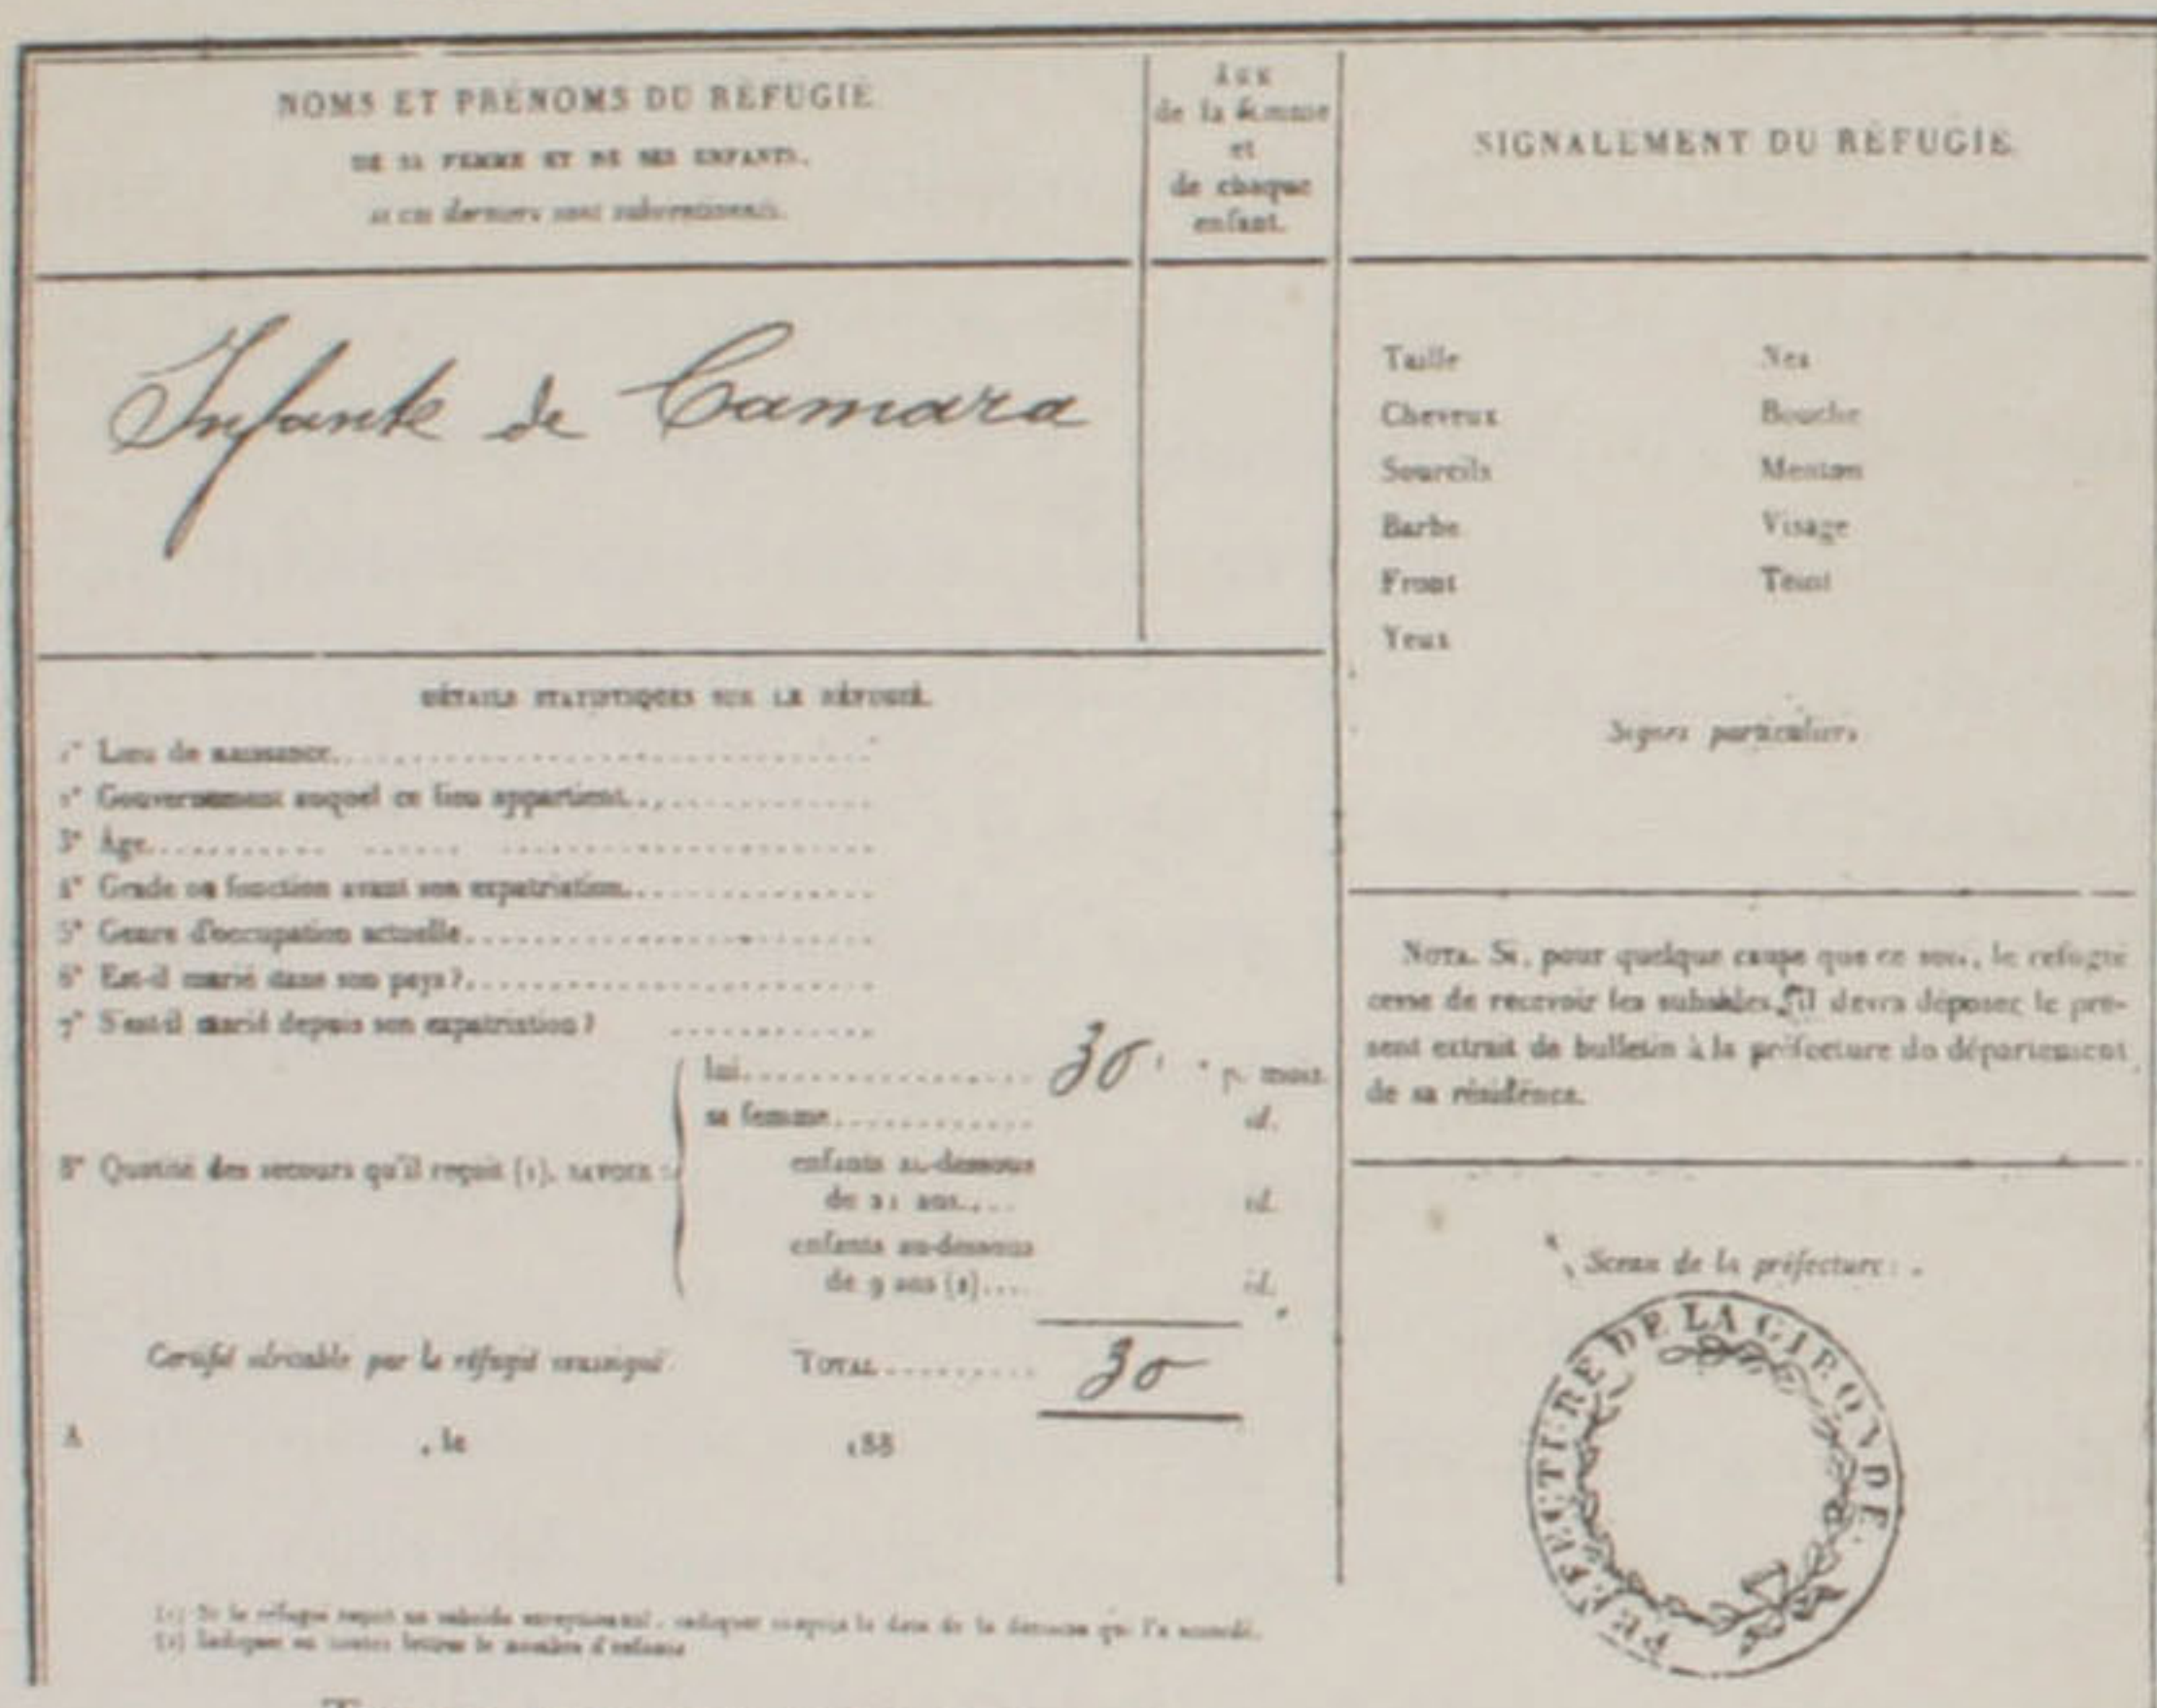 NOMS ET PRÉNOMS DU RÉFUGIÉ
DE SA FEMME ET DE SES ENFANTS,
si ces derniers sont subventionnés.
ÂGE
de la femme
et
de chaque
enfant.
SIGNALEMENT DU RÉFUGIÉ
Infante de Camara
Taille
Nez
Cheveux
Bouche
Sourcils
Menton
Barbe
Visage
Front
Teint
Yeux
Signes particuliers
DÉTAILS STATISTIQUES SUR LE RÉFUGIÉ.
1° Lieu de naissance
2° Gouvernement auquel ce lieu appartient
3° Âge
4° Grade ou fonction avant son expatriation
5° Genre d'occupation actuelle
6° Est-il marié dans son pays ?
7° S'est-il marié depuis son expatriation ?
8° Quotité des secours qu'il reçoit (1), SAVOIR :
lui 30 p. mois
sa femme id.
enfants au-dessous
de 21 ans id.
enfants au-dessous
de 9 ans (2) id.
Certifié véritable par le réfugié soussigné.
TOTAL 30
A , le 188
NOTA. Si, pour quelque cause que ce soit, le réfugié
cesse de recevoir les subsides, il devra déposer le pré-
sent extrait de bulletin à la préfecture du département
de sa résidence.
Sceau de la préfecture :
PRÉFECTURE DE LA GIRONDE
(1) Si le réfugié reçoit un subside exceptionnel, indiquer la date de la décision qui l'a accordé.
(2) Indiquer en toutes lettres le nombre d'enfants